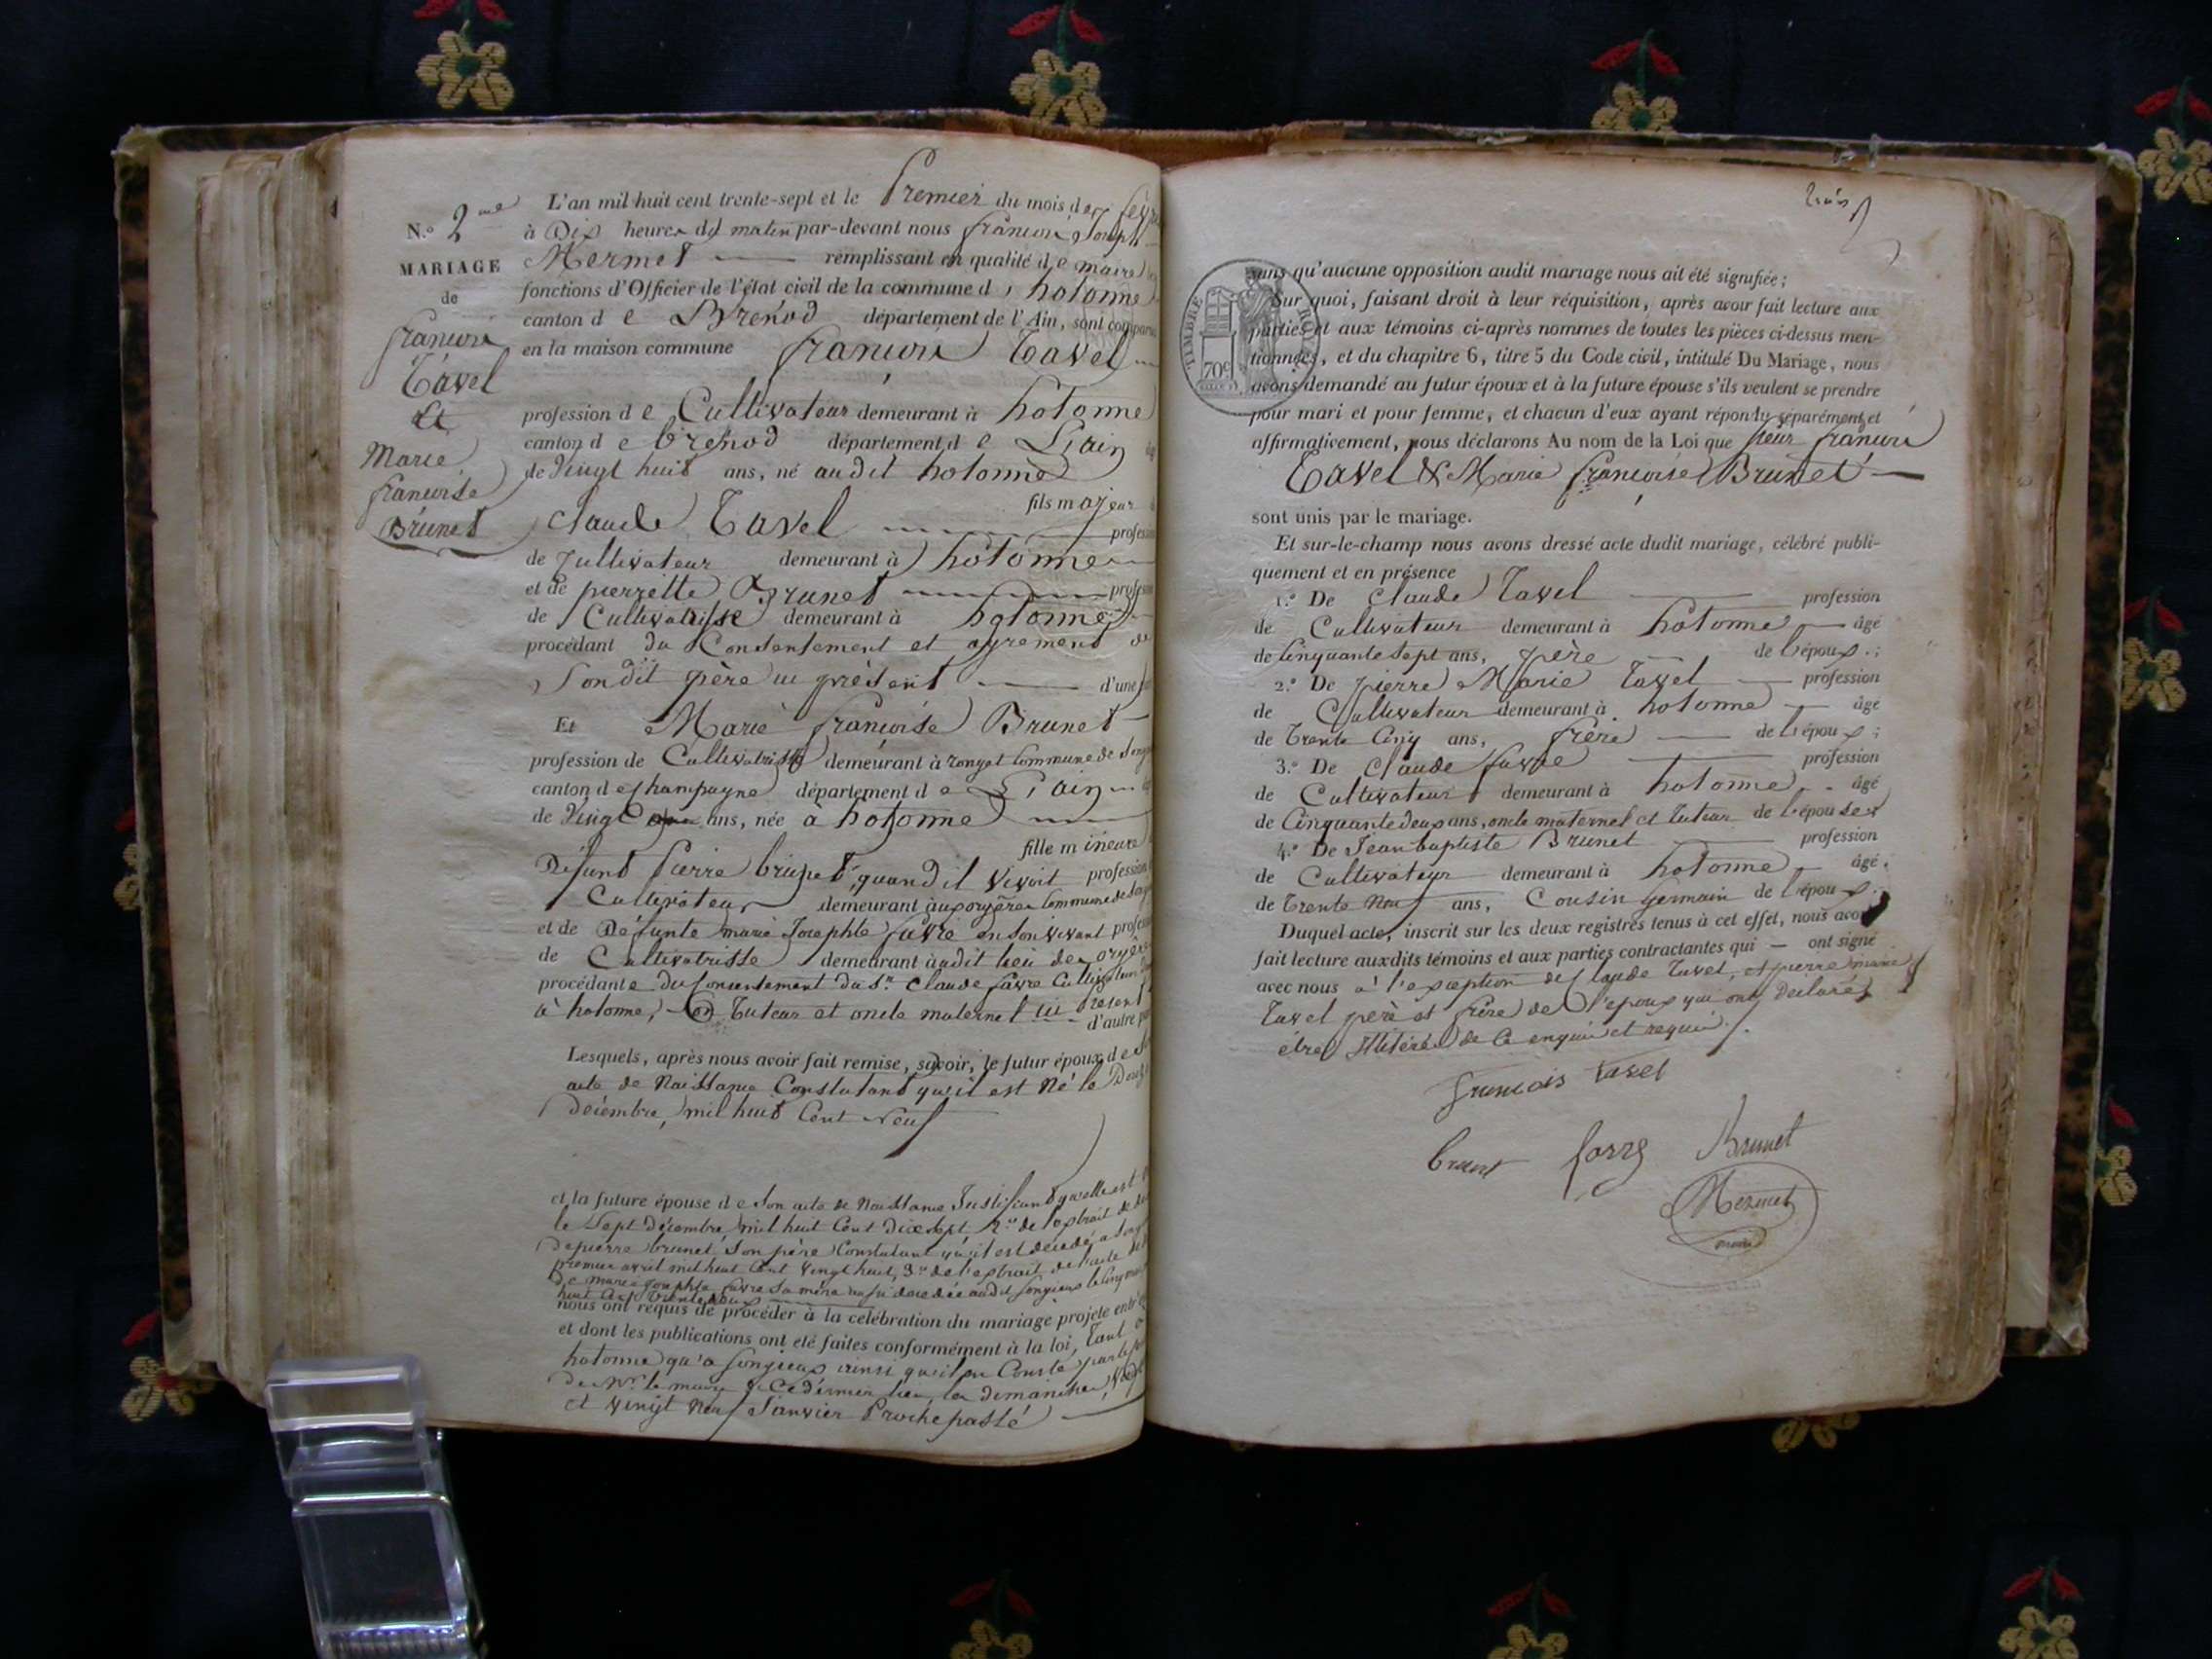 L'an mil huit cent trente-sept et le Premier du mois de
N.º 2me
à Dix heures du matin par-devant nous françois Joseph
MARIAGE
Mermet remplissant en qualité de maire
fonctions d'Officier de l'état civil de la commune d' hotonne
de
canton de Brénod département de l'Ain, sont comparus
françois
en la maison commune françois Tavel
Tavel
et
profession de Cultivateur demeurant à hotonne
canton de brenod département de L'ain
Marie
de vingt huit ans, né audit hotonne
françoise
fils majeur
Brunet
Claude Tavel profession
de Cultivateur demeurant à hotonne
et de pierrette Brunet profession
de Cultivatrisse demeurant à hotonne
procédant du Consentement et agrement de
Son dit père ici présent d'une
Et Marie françoise Brunet
profession de Cultivatrisse demeurant à commune de
canton de Champagne département de L'ain
de vingt ans, née à hotonne
fille mineure
Défunt Pierre brunet, quand il vivoit profession
Cultivateur demeurant commune de
et de Défunte marie Josephte favre en son vivant
de Cultivatrisse demeurant audit lieu
procédante du Consentement du Sr. Claude favre Cultivateur
à hotonne, son Tuteur et oncle maternel ici présent
d'autre
Lesquels, après nous avoir fait remise, savoir, le futur époux de
acte de Naissance Constatant qu'il est Né le
décembre, mil huit Cent Neuf
et la future épouse de son acte de Naissance Justifiant qu'elle est
le Sept Décembre, mil huit Cent Dix sept, 2º de l'extrait de
de pierre brunet son père Constatant qu'il est décédé a
premier avril mil huit Cent vingt huit, 3º de l'extrait de l'acte de
De marie Josephte favre sa mère décédée audit Songieux le Cinq
huit Cent Trente
nous ont requis de procéder à la célébration du mariage projeté entr'eux
et dont les publications ont été faites conformément à la loi, Tant
hotonne qu'a Songieux ainsi qu'il Conste par le
de Mr. le maire de Ce dernier lieu, les dimanches
et vingt Neuf Janvier Proche passé
sans qu'aucune opposition audit mariage nous ait été signifiée;
TIMBRE ROYAL
70c
Sur quoi, faisant droit à leur réquisition, après avoir fait lecture aux
parties et aux témoins ci-après nommés de toutes les pièces ci-dessus men-
tionnées, et du chapitre 6, titre 5 du Code civil, intitulé Du Mariage, nous
avons demandé au futur époux et à la future épouse s'ils veulent se prendre
pour mari et pour femme, et chacun d'eux ayant répondu séparément et
affirmativement, nous déclarons Au nom de la Loi que sieur françois
Tavel & Marie françoise Brunet
sont unis par le mariage.
Et sur-le-champ nous avons dressé acte dudit mariage, célébré publi-
quement et en présence
1.º De Claude Tavel profession
de Cultivateur demeurant à hotonne âgé
de Cinquante Sept ans, père de l'époux;
2.º De pierre Marie Tavel profession
de Cultivateur demeurant à hotonne âgé
de Trente Cinq ans, frère de l'époux;
3.º De Claude favre profession
de Cultivateur demeurant à hotonne âgé
de Cinquante deux ans, oncle maternel et tuteur de l'épouse
4.º De Jean baptiste Brunet profession
de Cultivateur demeurant à hotonne âgé
de Trente Neuf ans, Cousin germain de l'époux.
Duquel acte, inscrit sur les deux registres tenus à cet effet, nous avons
fait lecture auxdits témoins et aux parties contractantes qui ont signé
avec nous à l'exception de Claude Tavel, et pierre marie
Tavel père et frère de l'époux qui ont déclaré
etre Illitérés de Ce enquis et requis.
françois tavel
brunet favre Brunet
Mermet
maire